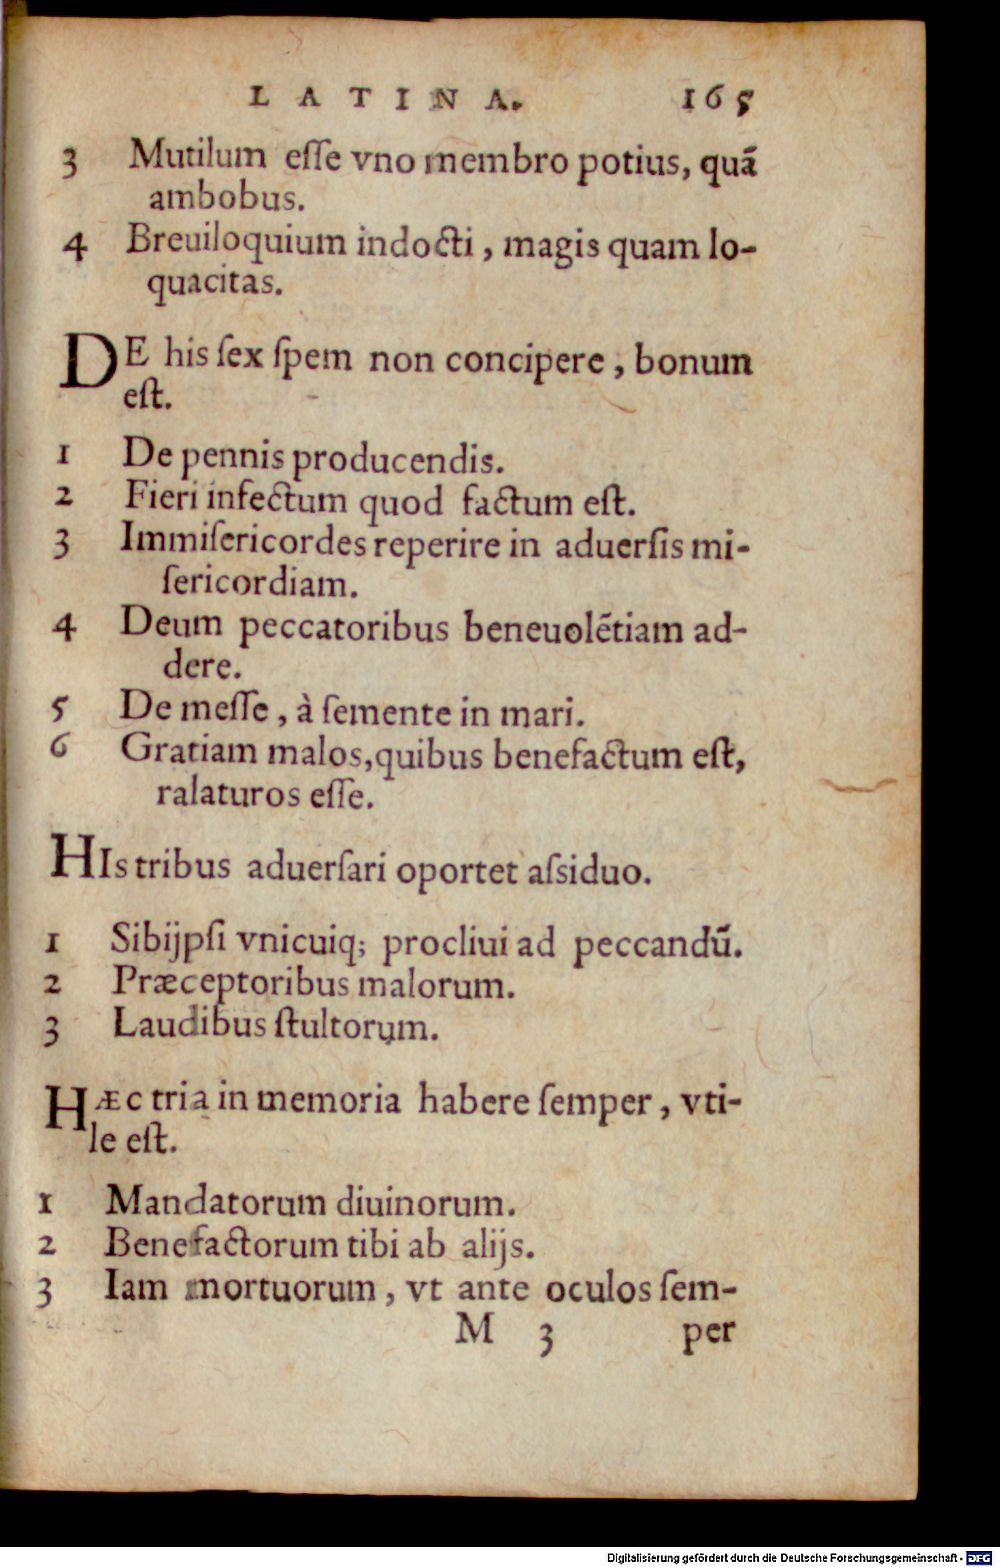 LATINA. 165
3 Mutilum eſſe vno membro potius, quã
ambobus.
4 Breuiloquium indocti, magis quam lo-
quacitas.
DE his ſex ſpem non concipere, bonum
eſt.
1 De pennis producendis.
2 Fieri infectum quod factum eſt.
3 Immiſericordes reperire in aduerſis mi-
ſericordiam.
4 Deum peccatoribus beneuolẽtiam ad-
dere.
5 De meſſe, à ſemente in mari.
6 Gratiam malos, quibus benefactum eſt,
ralaturos eſſe.
HIs tribus aduerſari oportet aſsiduo.
1 Sibijpſi vnicuiq; procliui ad peccandũ.
2 Præceptoribus malorum.
3 Laudibus ſtultorum.
HÆC tria in memoria habere ſemper, vti-
le eſt.
1 Mandatorum diuinorum.
2 Benefactorum tibi ab alijs.
3 Iam mortuorum, vt ante oculos ſem-
M 3 per
Digitalisierung gefördert durch die Deutsche Forschungsgemeinschaft - DFG